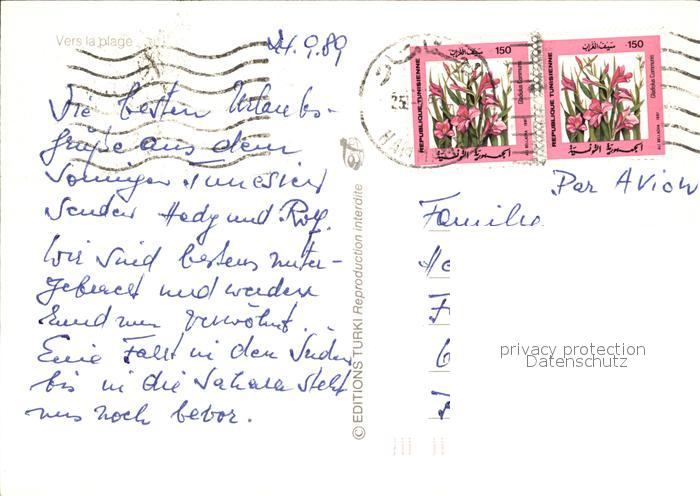 Vers la plage
24.9.89
Die besten Urlaubs-
grüße aus dem
sonnigen Tunesien
senden Hedy und Rolf.
Wir sind bestens unter-
gebracht und werden
rund um verwöhnt...
Eine Fahrt in den Süden
bis in die Sahara steht
uns noch bevor.
© EDITIONS TURKI Reproduction interdite
150
REPUBLIQUE TUNISIENNE
Gladiolus Communis
سيف الغراب
الجمهورية التونسية
150
REPUBLIQUE TUNISIENNE
Gladiolus Communis
سيف الغراب
الجمهورية التونسية
Par Avion
Familie
privacy protection
Datenschutz